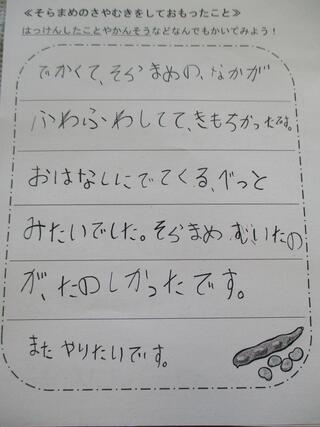 ≪そらまめのさやむきをしておもったこと≫
はっけんしたことやかんそうなどなんでもかいてみよう！
でかくて、そらまめの、なかが
ふわふわしてて、きもちかったです。
おはなしにでてくる、べっと
みたいでした。そらまめ むいたの
が、たのしかったです。
また やりたいです。